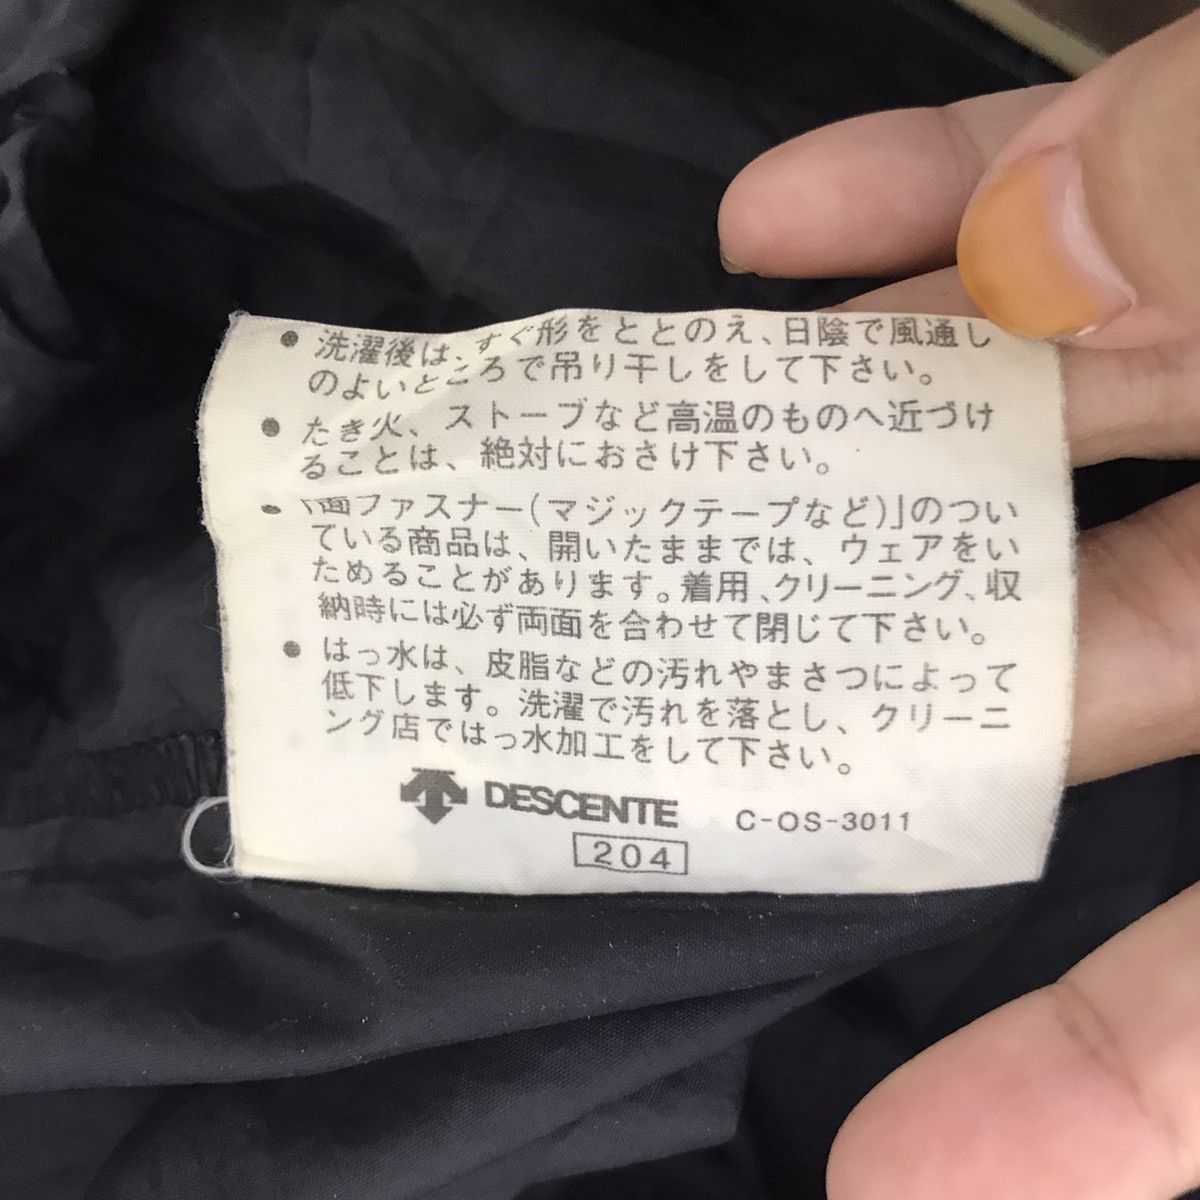 ● 洗濯後は、すぐ形をととのえ、日陰で風通し
のよいところで吊り干しをして下さい。
● たき火、ストーブなど高温のものへ近づけ
ることは、絶対におさけ下さい。
● 「面ファスナー(マジックテープなど)」のつい
ている商品は、開いたままでは、ウェアをい
ためることがあります。着用、クリーニング、収
納時には必ず両面を合わせて閉じて下さい。
● はっ水は、皮脂などの汚れやまさつによって
低下します。洗濯で汚れを落とし、クリーニ
ング店ではっ水加工をして下さい。
DESCENTE C-OS-3011
204